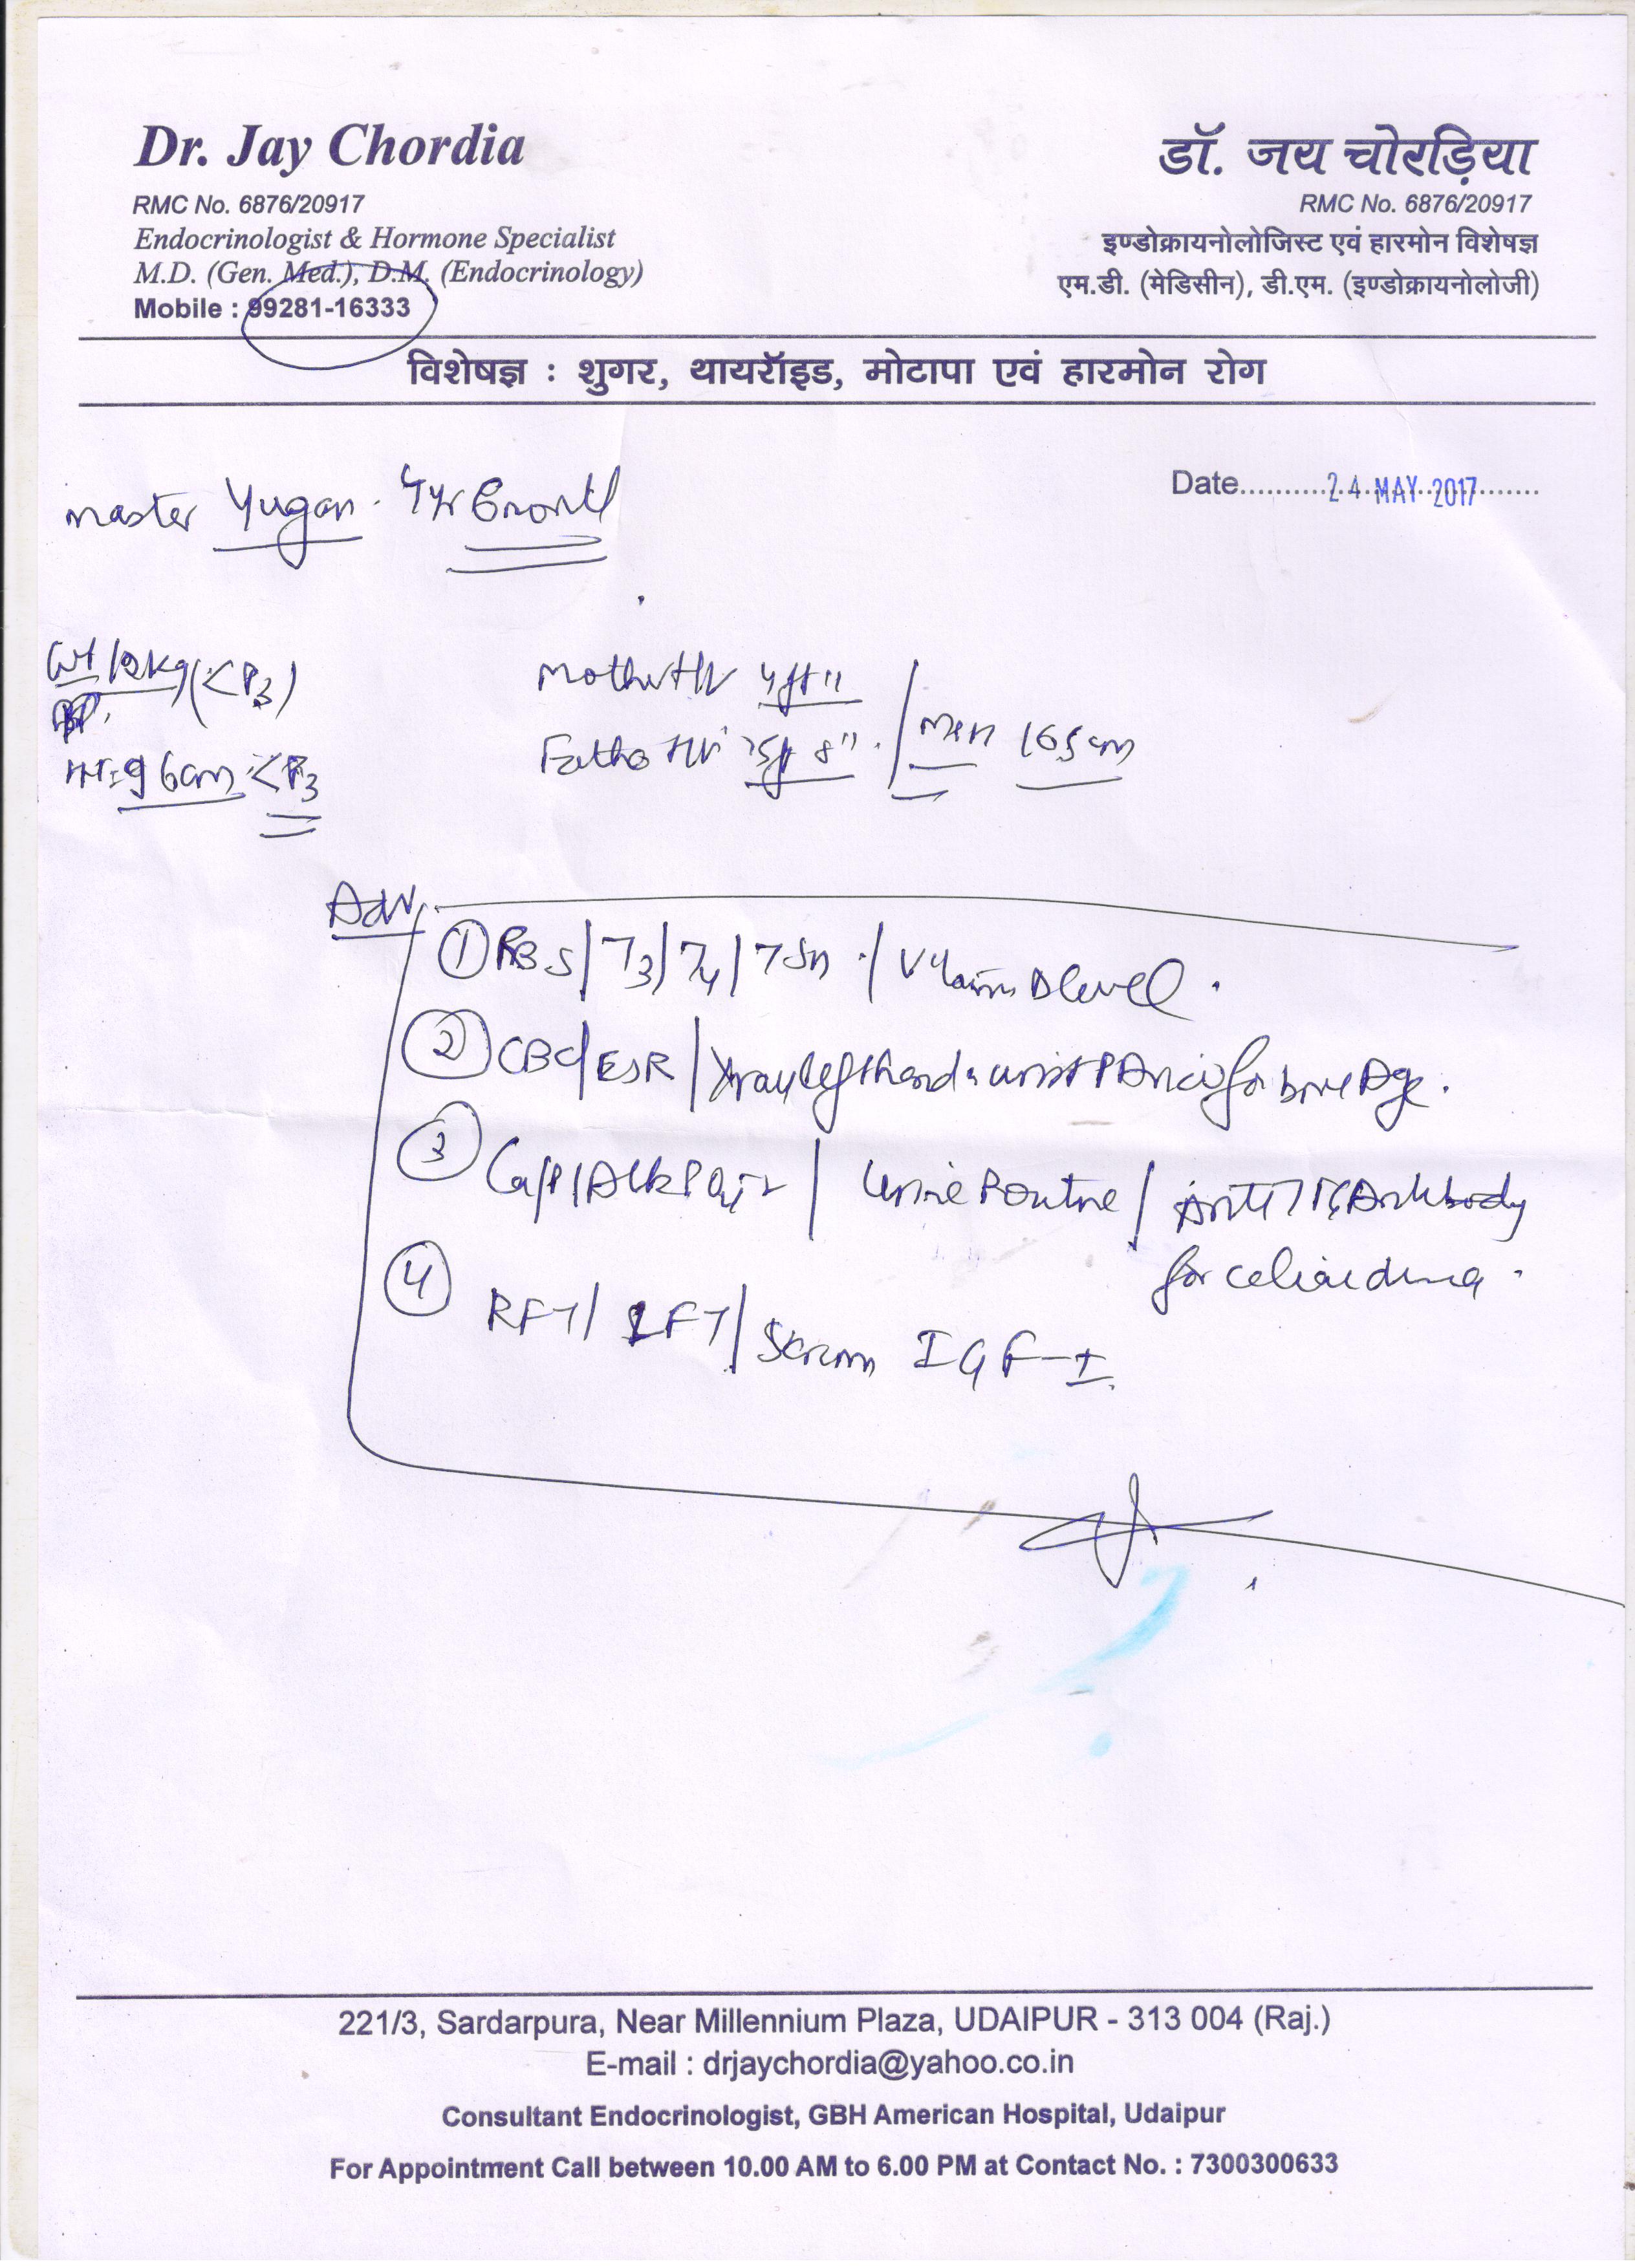 Dr. Jay Chordia
RMC No. 6876/20917
Endocrinologist & Hormone Specialist
M.D. (Gen. Med.), D.M. (Endocrinology)
Mobile : 99281-16333
डॉ. जय चोरड़िया
RMC No. 6876/20917
इण्डोक्रायनोलोजिस्ट एवं हारमोन विशेषज्ञ
एम.डी. (मेडिसीन), डी.एम. (इण्डोक्रायनोलोजी)
विशेषज्ञ : शुगर, थायरॉइड, मोटापा एवं हारमोन रोग
Date 24 MAY 2017
Master Yugan
Wt 12kg (<P3)
Ht = 96cm <P3
Mother Ht 4ft 11
Father Ht 5ft 8"
165cm
Adv
① RBS / T3 / T4 / TSH / Vitamin D level.
② CBC / ESR / Xray left hand & wrist for bone Age.
③ Ca / P / Alk / Urine Routine / Anti TTG Antibody
for celiac
④ RFT / LFT / Serum IGF-I
221/3, Sardarpura, Near Millennium Plaza, UDAIPUR - 313 004 (Raj.)
E-mail : drjaychordia@yahoo.co.in
Consultant Endocrinologist, GBH American Hospital, Udaipur
For Appointment Call between 10.00 AM to 6.00 PM at Contact No. : 7300300633